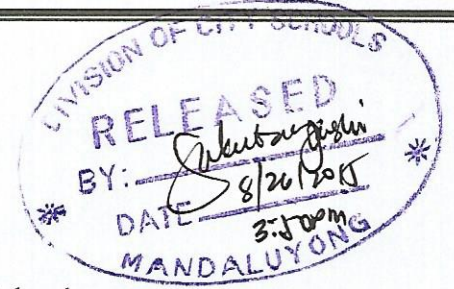 DIVISION OF CITY SCHOOLS
RELEASED
BY:
DATE 8/26/2015
3:50pm
MANDALUYONG